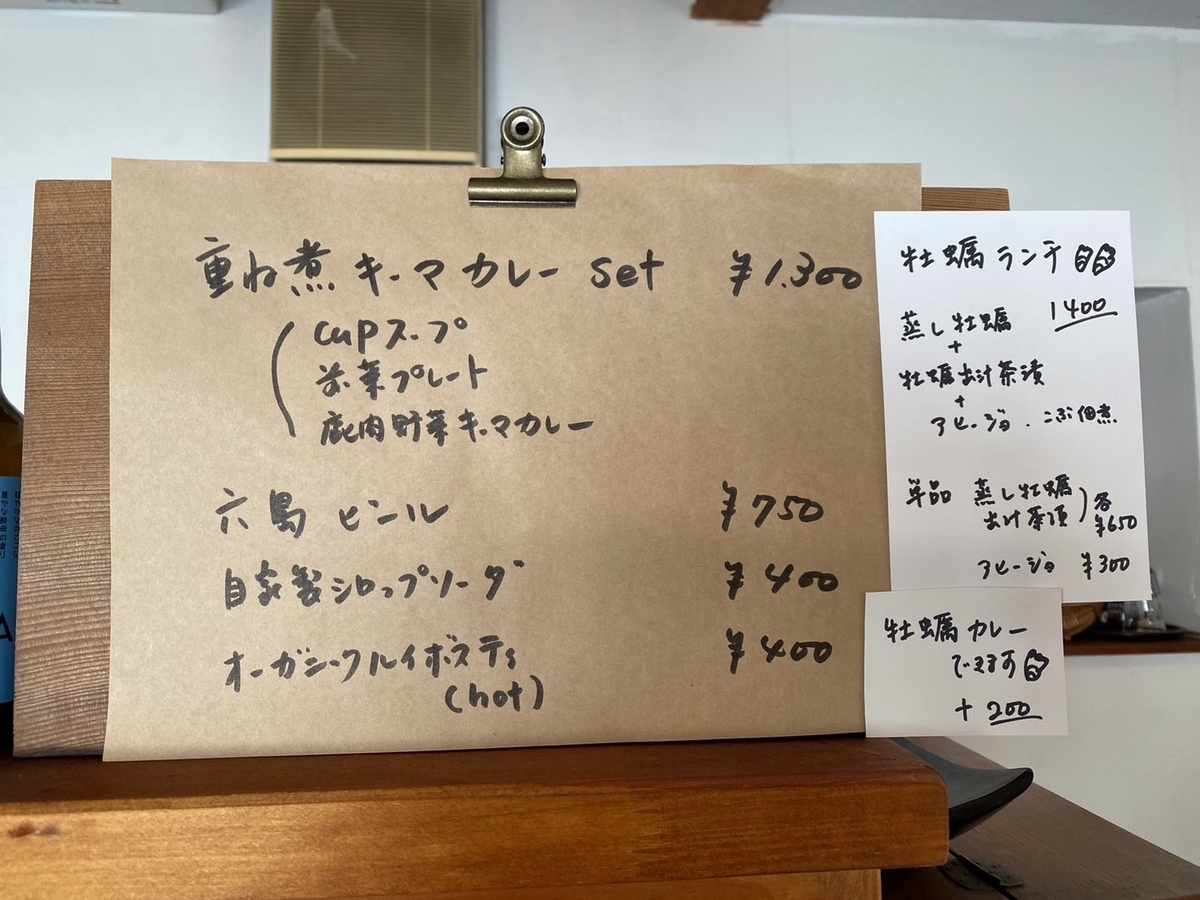 重ね煮 キーマカレー set ¥1.300
cupスープ
お菜プレート
鹿肉野菜キーマカレー
六島 ビール ¥750
自家製シロップソーダ ¥400
オーガニックルイボスティ ¥400
(hot)
牡蠣ランチ
1400
蒸し牡蠣
+
牡蠣出汁茶漬
+
アヒージョ．こぶ佃煮
単品 蒸し牡蠣
出汁茶漬
各
¥650
アヒージョ ¥300
牡蠣カレー
できます
+200